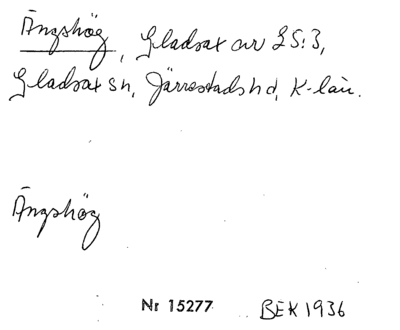 Ängshög, Gladsax nr 25:3,
Gladsax sn, Järrestads hd, K-län.
Ängshög
Nr 15277 BEK 1936